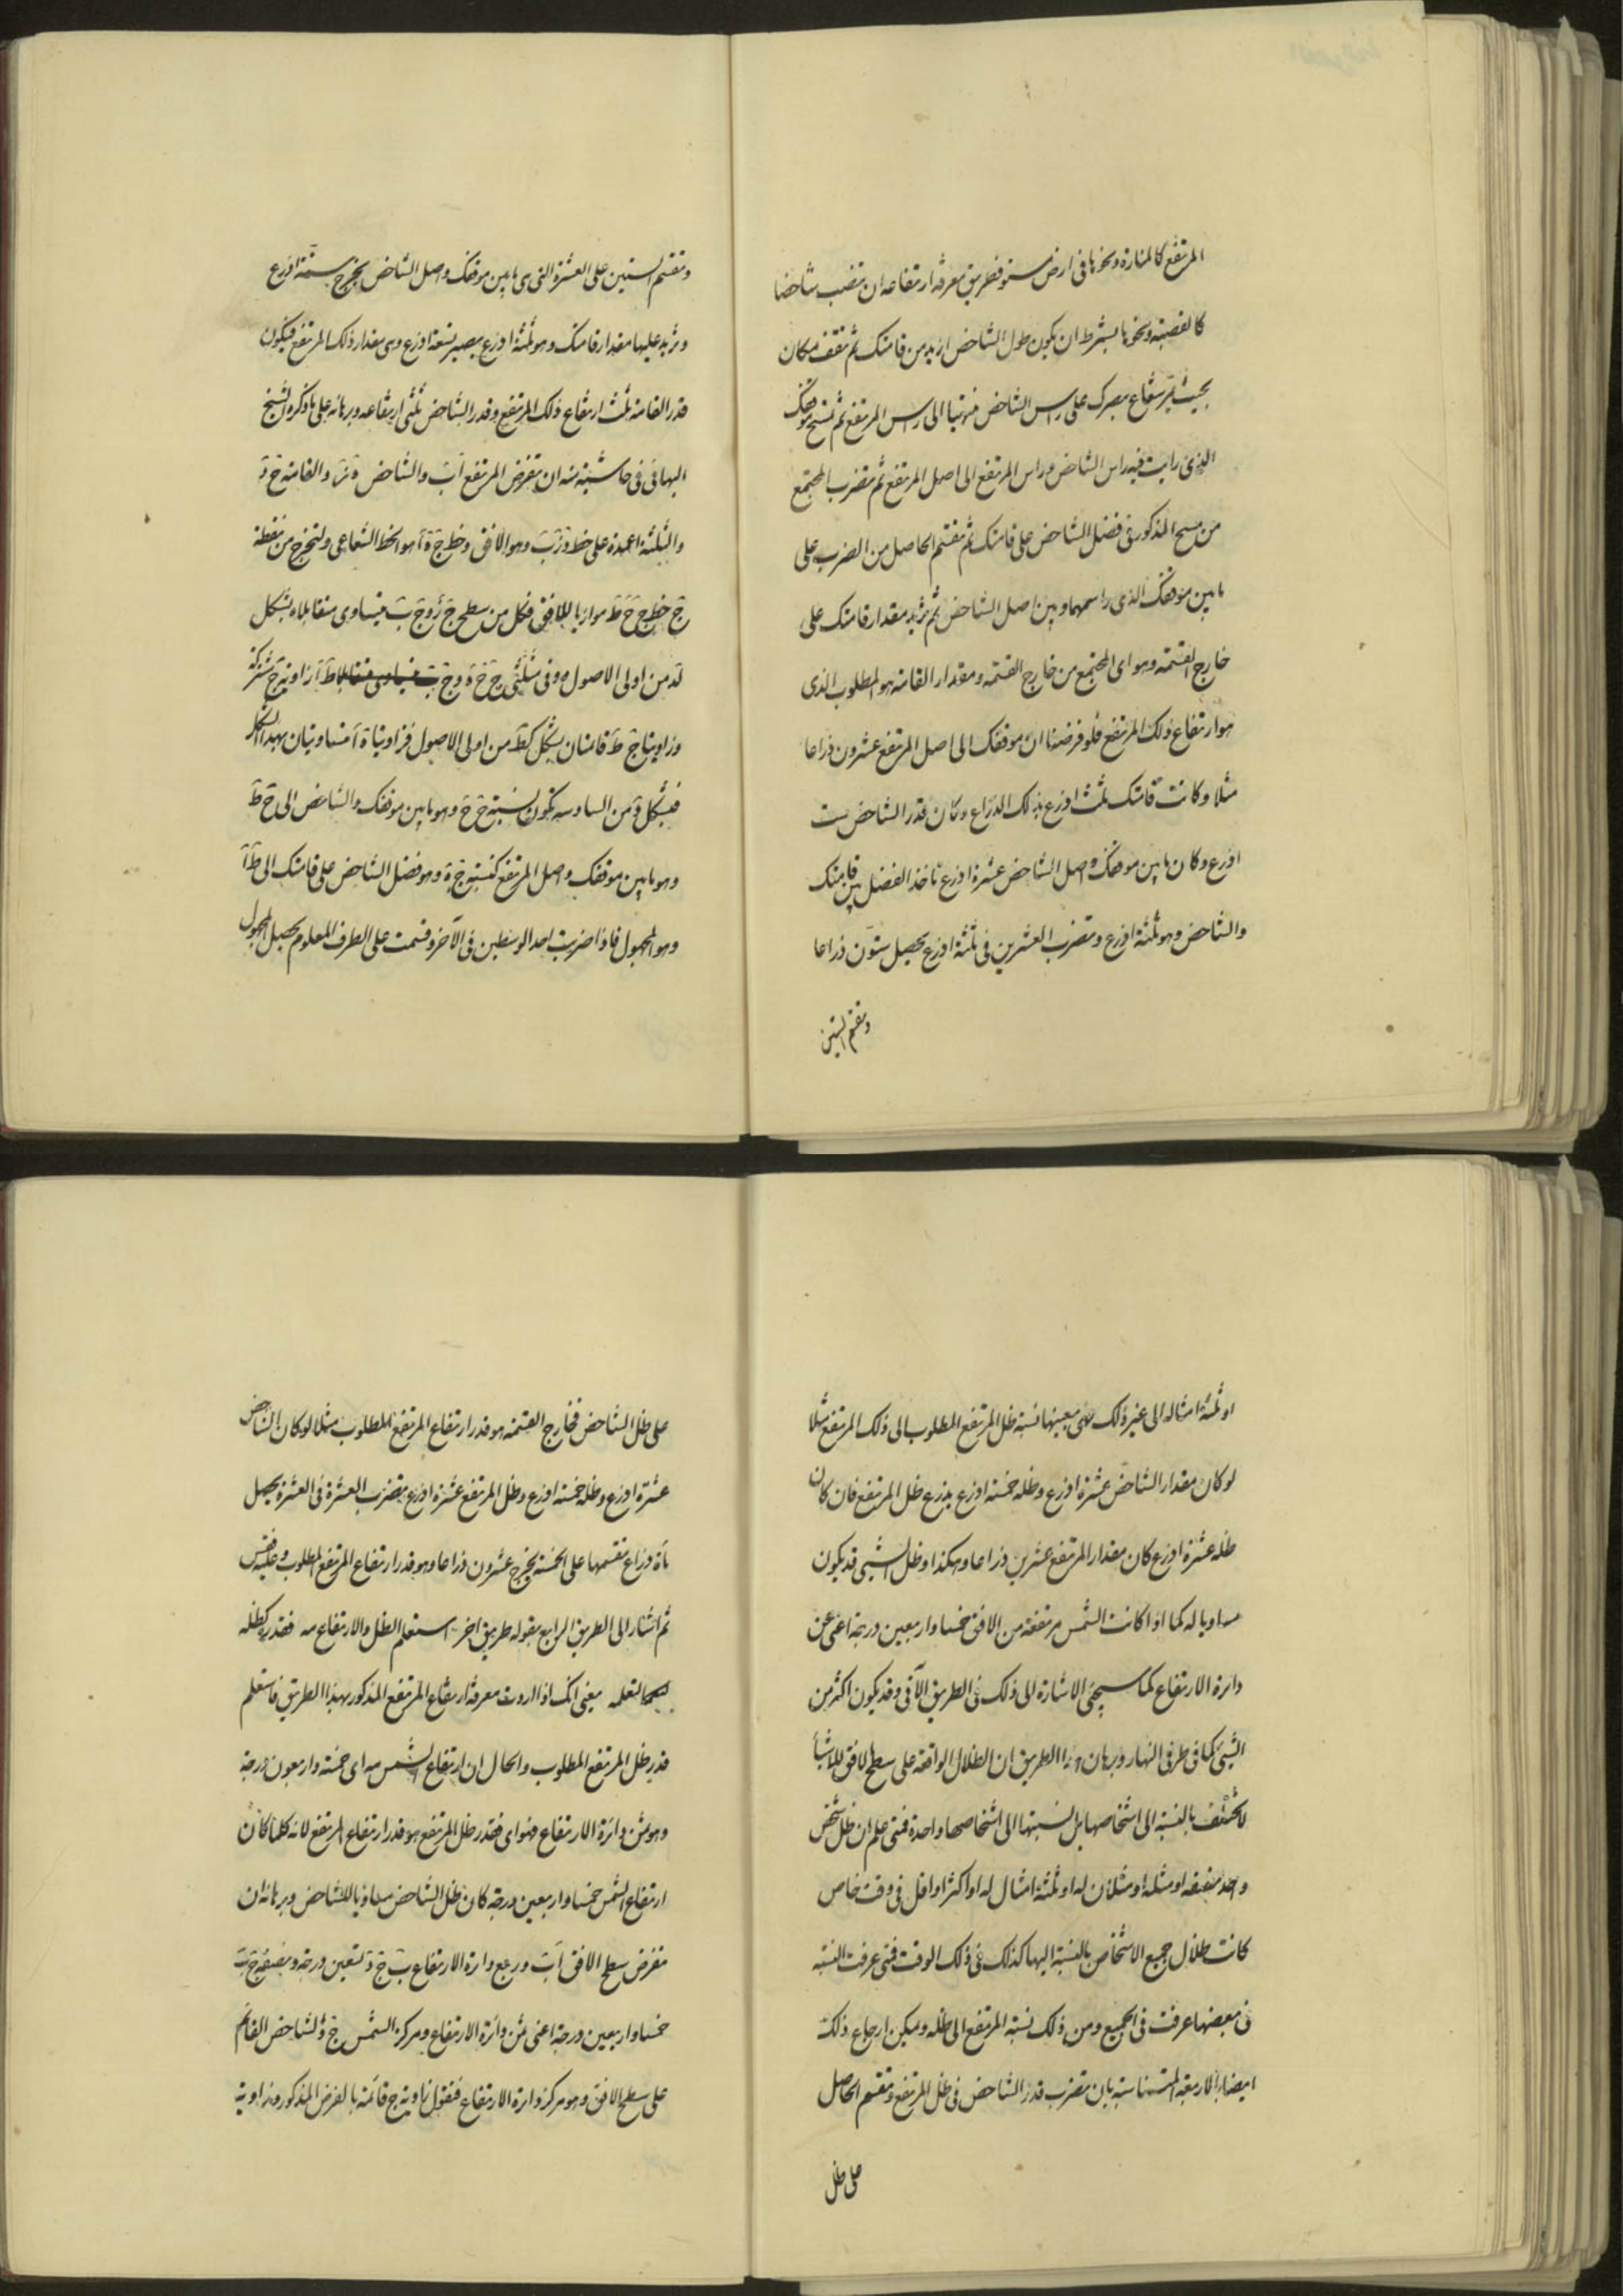 المرتفع كالمنارة ونحوها فى ارض مستو فطريق معرفة ارتفاعه ان تنصب شاخصا
كالقصبة ونحوها بشرط ان يكون طول الشاخص ازيد من قامتك ثم تقف مكان
بحيث يمر شعاع بصرك على راس الشاخص منتهيا الى راس المرتفع ثم تمسح موقفك
الذى رايت فيه راس الشاخص وراس المرتفع الى اصل المرتفع ثم تضرب المجتمع
من مسح المذكور فى فضل الشاخص على قامتك ثم تقسم الحاصل من الضرب على
ما بين موقفك الذى راسمهما وبين اصل الشاخص ثم تزيد مقدار قامتك على
خارج القسمة وهو اى المجتمع من خارج القسمة ومقدار القامة هو المطلوب الذى
هو ارتفاع ذلك المرتفع فلو فرضنا ان موقفك الى اصل المرتفع عشرون ذراعا
مثلا وكانت قامتك ثلث اذرع بذلك الذراع وكان قدر الشاخص ست
اذرع وكان ما بين موقفك واصل الشاخص عشرة اذرع تاخذ الفضل بين قامتك
والشاخص وهو ثلثة اذرع وتضرب العشرين فى ثلثة اذرع يحصل ستون ذراعا
وتقسم الستين
وتقسم الستين على العشرة التى هى ما بين موقفك واصل الشاخص يخرج ستة اذرع
وتزيد عليها مقدار قامتك وهو ثلثة اذرع يصير تسعة اذرع وهى مقدار ذلك المرتفع فيكون
قدر القامة ثلث ارتفاع ذلك المرتفع وقدر الشاخص ثلثى ارتفاعه وبرهانه على ما ذكره الشيخ
البهائى فى حاشيته منه ان تفرض المرتفع اب والشاخص ه ز والقامة ج د
والثلثة اعمدة على خط د ز ب وهو الافق وخط ج ه ا هو الخط الشعاعى ولنخرج من نقطة
ج خط ج ح ط موازيا للافق فكل من سطح ج ز و ج ب يتساوى متقابلاه بشكل
لد من اولى الاصول وفى مثلثى ج ح ه و ج ط ا زاوية ج مشتركة
وزاويتا ح ط قائمتان بشكل كط من اولى الاصول فزاويتا ه ا متساويتان بهذا الشكل
فبشكل د من السادسه تكون نسبة ج ح وهو ما بين موقفك والشاخص الى ج ط
وهو ما بين موقفك واصل المرتفع كنسبة ح ه وهو فضل الشاخص على قامتك الى ط ا
وهو المجهول فاذا ضربت احد الوسطين فى الآخر وقسمت على الطرف المعلوم يحصل المجهول
او ثلثة امثاله الى غير ذلك فهى بعينها نسبة ظل المرتفع المطلوب الى ذلك المرتفع مثلا
لو كان مقدار الشاخص عشرة اذرع وظله خمسة اذرع يذرع ظل المرتفع فان كان
ظله عشرة اذرع كان مقدار المرتفع عشرين ذراعا وهكذا وظل الشيئ قد يكون
مساويا له كما اذا كانت الشمس مرتفعة من الافق خمسا واربعين درجة اعنى ثمن
دائرة الارتفاع كما سيجئ الاشارة الى ذلك فى الطريق الآتى وقد يكون اكثر من
الشيئ كما فى طرفى النهار وبرهان هذا الطريق ان الظلال الواقعة على سطح الافق للاشيأ
لا تختلف بالنسبة الى اشخاصها بل نسبتها الى اشخاصها واحدة فمتى علم ان ظل شخص
واحد نصفه او مثله او مثلان له او ثلثة امثال له او اكثر او اقل فى وقت خاص
كانت ظلال جميع الاشخاص بالنسبة اليها كذلك فى ذلك الوقت فمتى عرفت النسبه
فى بعضها عرفت فى الجميع ومن ذلك نسبة المرتفع الى ظله ويمكن ارجاع ذلك
ايضا بالاربعة المتناسبة بان تضرب قدر الشاخص فى ظل المرتفع وتقسم الحاصل
على ظل
على ظل الشاخص فخارج القسمة هو قدر ارتفاع المرتفع المطلوب مثلا لو كان الشاخص
عشرة اذرع وظله خمسة اذرع وظل المرتفع عشرة اذرع تضرب العشرة فى العشرة يحصل
مأة ذراع تقسمها على الخمسة يخرج عشرون ذراعا وهو قدر ارتفاع المرتفع المطلوب وعليه فقس
ثم اشار الى الطريق الرابع بقوله طريق اخر استعلم الظل والارتفاع مه فقدر ظله
يعنى انك اذا اردت معرفة ارتفاع المرتفع المذكور بهذا الطريق فاستعلم
قدر ظل المرتفع المطلوب والحال ان ارتفاع الشمس مه اى خمسة واربعون درجة
وهو ثمن دائرة الارتفاع فهو اى فقدر ظل المرتفع هو قدر ارتفاع المرتفع لانه كلما كان
ارتفاع الشمس خمسا واربعين درجة كان ظل الشاخص مساويا للشاخص وبرهانه ان
تفرض سطح الافق اب وربع دائرة الارتفاع ب ج د تسعين درجة ونصفه ج ب
خمسا واربعين درجة اعنى ثمن دائرة الارتفاع ومركز الشمس ج والشاخص القائم
على سطح الافق وهو مركز دائرة الارتفاع فنقول زاوية ج قائمة بالفرض المذكور وزاوية